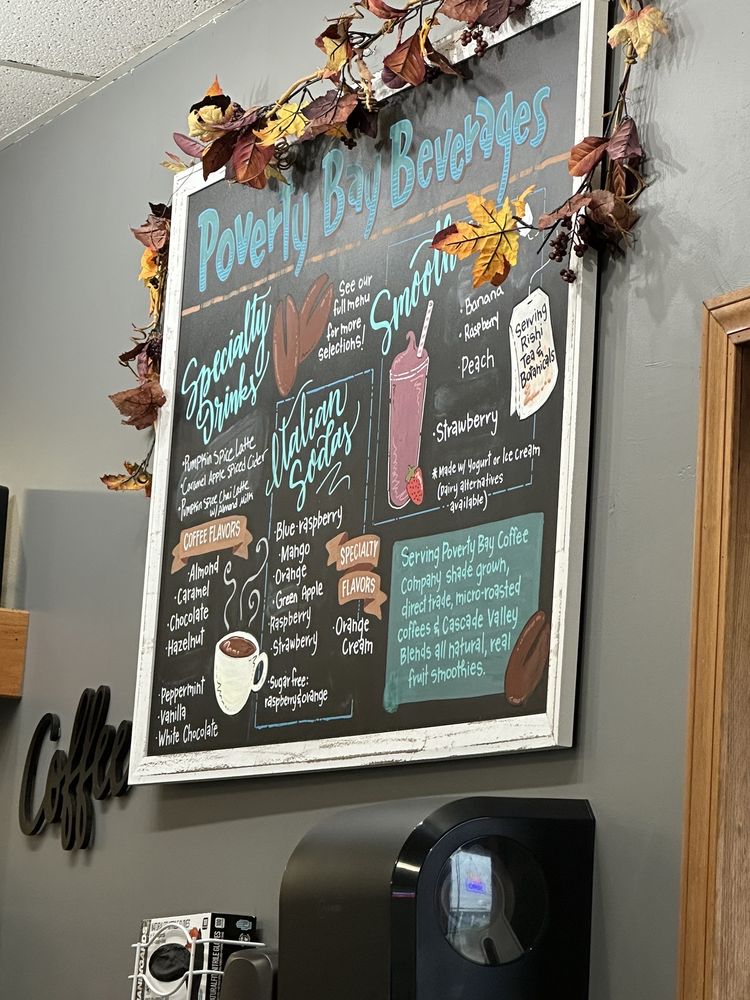 Poverty Bay Beverages
Specialty
Drinks
See our
full menu
for more
selections!
•Pumpkin Spice Latte
•Caramel Apple Spiced Cider
•Pumpkin Spice Chai Latte
w/ Almond Milk
COFFEE FLAVORS
•Almond
•Caramel
•Chocolate
•Hazelnut
•Peppermint
•Vanilla
•White Chocolate
Italian
Sodas
•Blue-raspberry
•Mango
•Orange
•Green Apple
•Raspberry
•Strawberry
•Sugar free:
raspberry&orange
SPECIALTY
FLAVORS
•Orange
Cream
Smooth
•Banana
•Raspberry
•Peach
•Strawberry
*Made w/ Yogurt or Ice Cream
(Dairy alternatives
available)
Serving
Rishi
Tea &
Botanicals
Serving Poverty Bay Coffee
Company shade grown,
direct trade, micro-roasted
coffees & Cascade Valley
Blends all natural, real
fruit smoothies.
Coffee